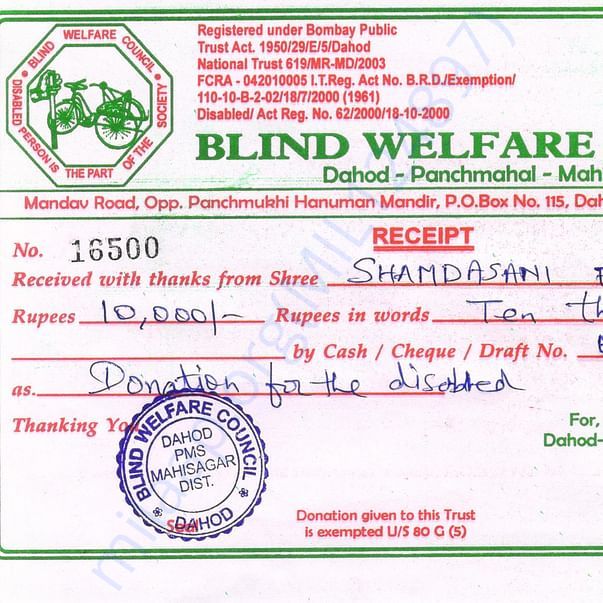 BLIND WELFARE COUNCIL
DISABLED PERSON IS THE PART OF THE SOCIETY
Registered under Bombay Public
Trust Act. 1950/29/E/5/Dahod
National Trust 619/MR-MD/2003
FCRA - 042010005 I.T.Reg. Act No. B.R.D./Exemption/
110-10-B-2-02/18/7/2000 (1961)
Disabled/ Act Reg. No. 62/2000/18-10-2000
BLIND WELFARE
Dahod - Panchmahal - Mah
Mandav Road, Opp. Panchmukhi Hanuman Mandir, P.O.Box No. 115, Dah
No. 16500 RECEIPT
Received with thanks from Shree SHAMDASANI
Rupees 10,000/- Rupees in words Ten th
by Cash / Cheque / Draft No.
as. Donation for the disabled
Thanking You
For,
Dahod-
BLIND WELFARE COUNCIL
DAHOD
PMS
MAHISAGAR
DIST.
DAHOD
Seal
Donation given to this Trust
is exempted U/S 80 G (5)